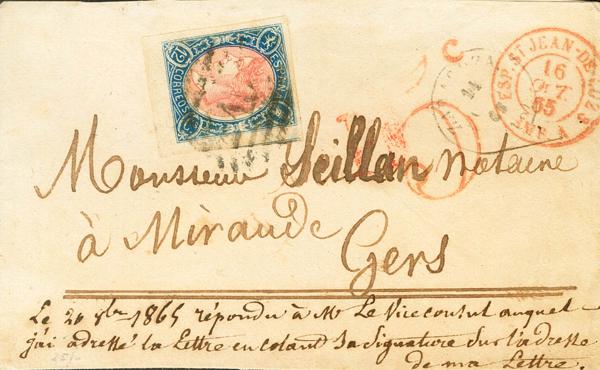 CORREOS
ESPAÑA
12
C
ESP. ST JEAN-DE-LUZ
16
OCT.
65
AMB. A
Monsieur Seillan notaire
à Mirande
Gers
Le 20 8bre 1865 répondu à Mr Le Viceconsul auquel
j'ai adressé la Lettre en colant Sa Signature Sur l'adresse
de ma Lettre.